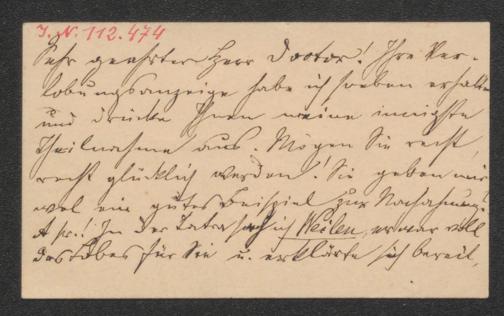 I. N. 112.474
Sehr geehrter Herr Doctor! Ihre Ver-
lobungsanzeige habe ich soeben erhalten
und drücke Ihnen meine innigste
Theilnahme aus. Mögen Sie recht,
recht glücklich werden! Sie geben mir
wol ein gutes Beispiel zur Nachahmung!
A pr.! In der Tatra sah ich Weilen, er war voll
des Lobes für Sie u. erklärte sich bereit,